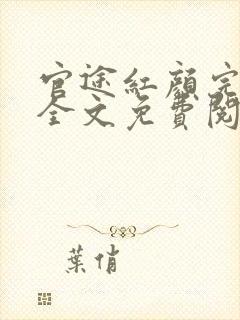 官途紅顏完
全文免費閱
葉俏